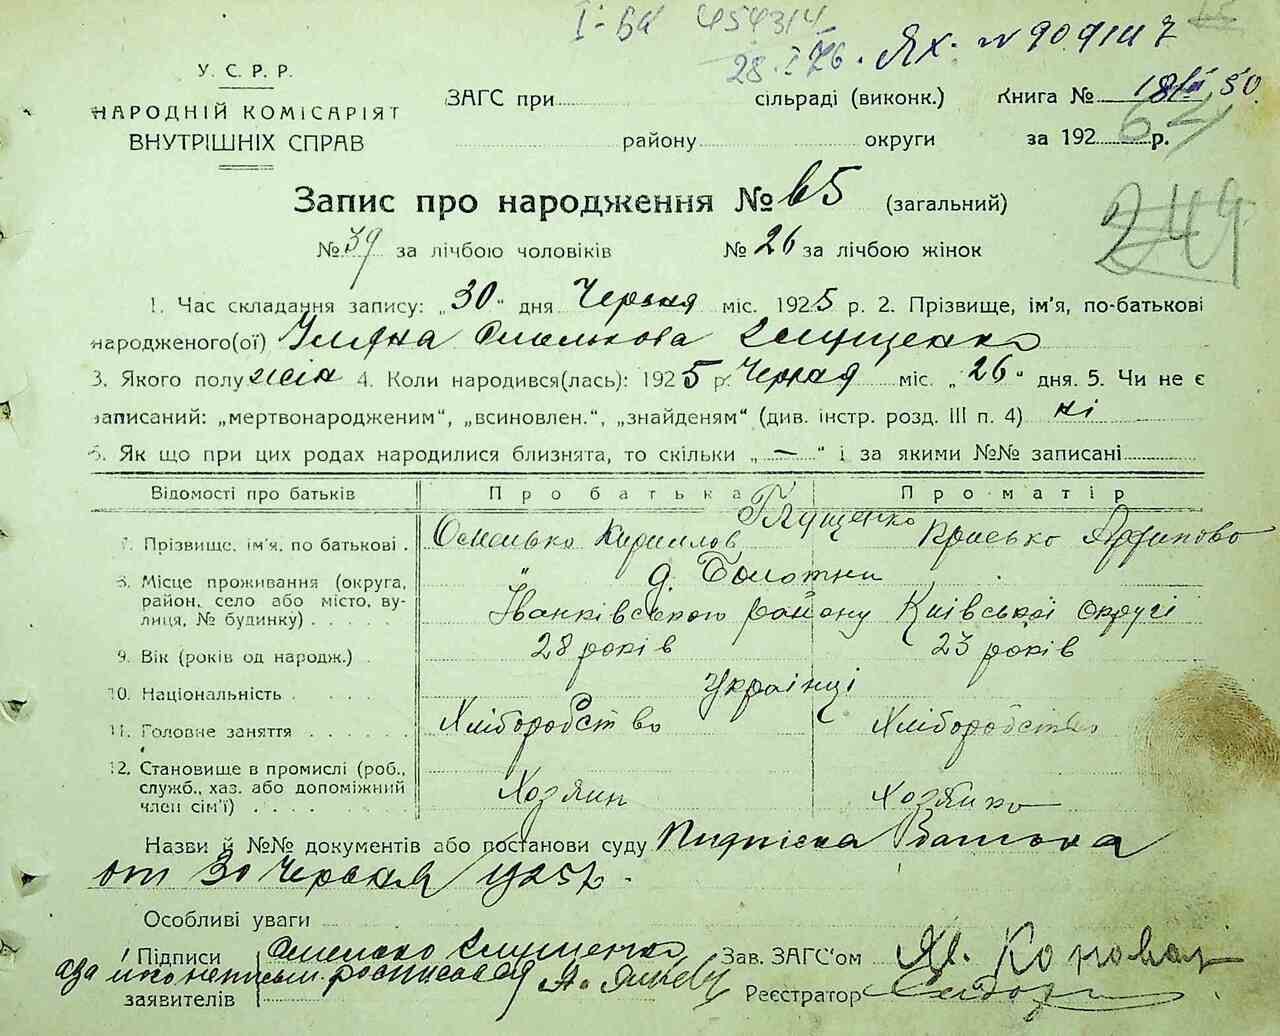 І-БА 454314
28.I 76. ЯХ. № 909117
У. С. Р. Р.
НАРОДНІЙ КОМІСАРІЯТ
ВНУТРІШНІХ СПРАВ
ЗАГС при сільраді (виконк.) Книга №
району округи за 192 р.
Запис про народження № 65 (загальний)
249
№ 39 за лічбою чоловіків № 26 за лічбою жінок
1. Час складання запису: „30" дня Червня міс. 1925 р. 2. Прізвище, ім'я, по-батькові
народженого(ої) Уляна Омелькова Глущенко
3. Якого полу жін 4. Коли народився(лась): 1925 р. Червня міс. „26" дня. 5. Чи не є
записаний: „мертвонародженим", „всиновлен.", „знайденям" (див. інстр. розд. III п. 4) ні
6. Як що при цих родах народилися близнята, то скільки „—" і за якими №№ записані
Відомості про батьків Про батька Про матір
Глущенко
7. Прізвище, ім'я, по батькові . Омелько Кириллов Прісько Архипово
8. Місце проживання (округа, " д. Болотни
район, село або місто, ву- Іванківського району Київської округі
лиця, № будинку) . . . . .
9. Вік (років од народж.) . 28 років 23 років
10. Національність . . . . . Украінці
11. Головне заняття . . . . . Хліборобство Хліборобство
12. Становище в промислі (роб.,
служб., хаз. або допоміжний Хозяин Хозяйко
член сім'ї) . . . .
Назви й №№ документів або постанови суду Підпіска Батька
от 30 Червня 1925 г.
Особливі уваги
Підписи Омелько Глущенко Зав. ЗАГС'ом Яв. Коновал
а за росписався А.
заявителів Реєстратор